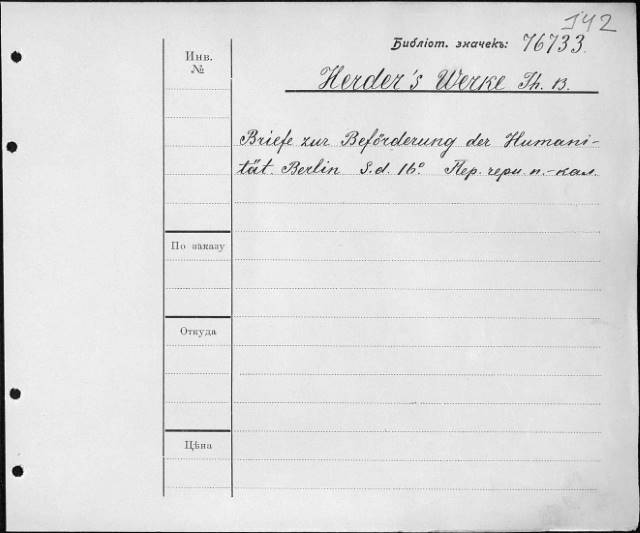 142
Библіот. значекъ: 76733.
Инв.
№
Herder's Werke Th. 13.
Briefe zur Beförderung der Humani-
tät. Berlin S.d. 16° Пер. черн. п.-кал.
По заказу
Откуда
Цѣна